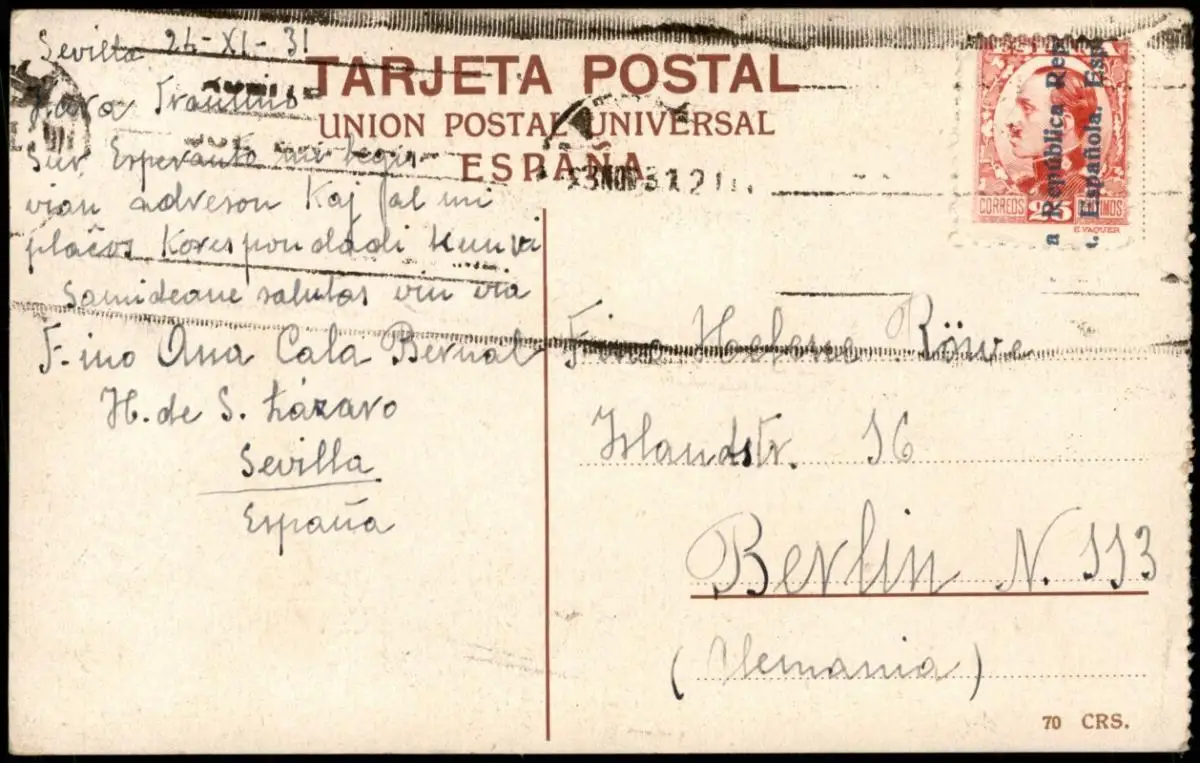 Sevilla 24-XI-31
Kara Fraulino
Sur Esperanto mi legis
vian adreson Kaj al mi
plaĉos Korespondadi kun vi
Samideane salutas vin via
F-ino Ana Cala Bernal
H. de S. Lázaro
Sevilla
España
TARJETA POSTAL
UNION POSTAL UNIVERSAL
ESPAÑA
23 NOV 31
CORREOS 25
E. VAQUER
a República
Española.
F-ino Helene Röwe
Islandstr. 16
Berlin N. 113
(Alemania)
70 CRS.